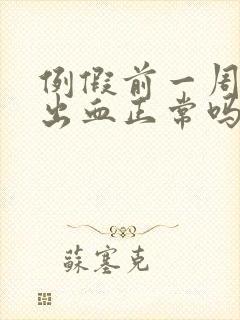 例假前一周
出血正常吗
蘇塞克